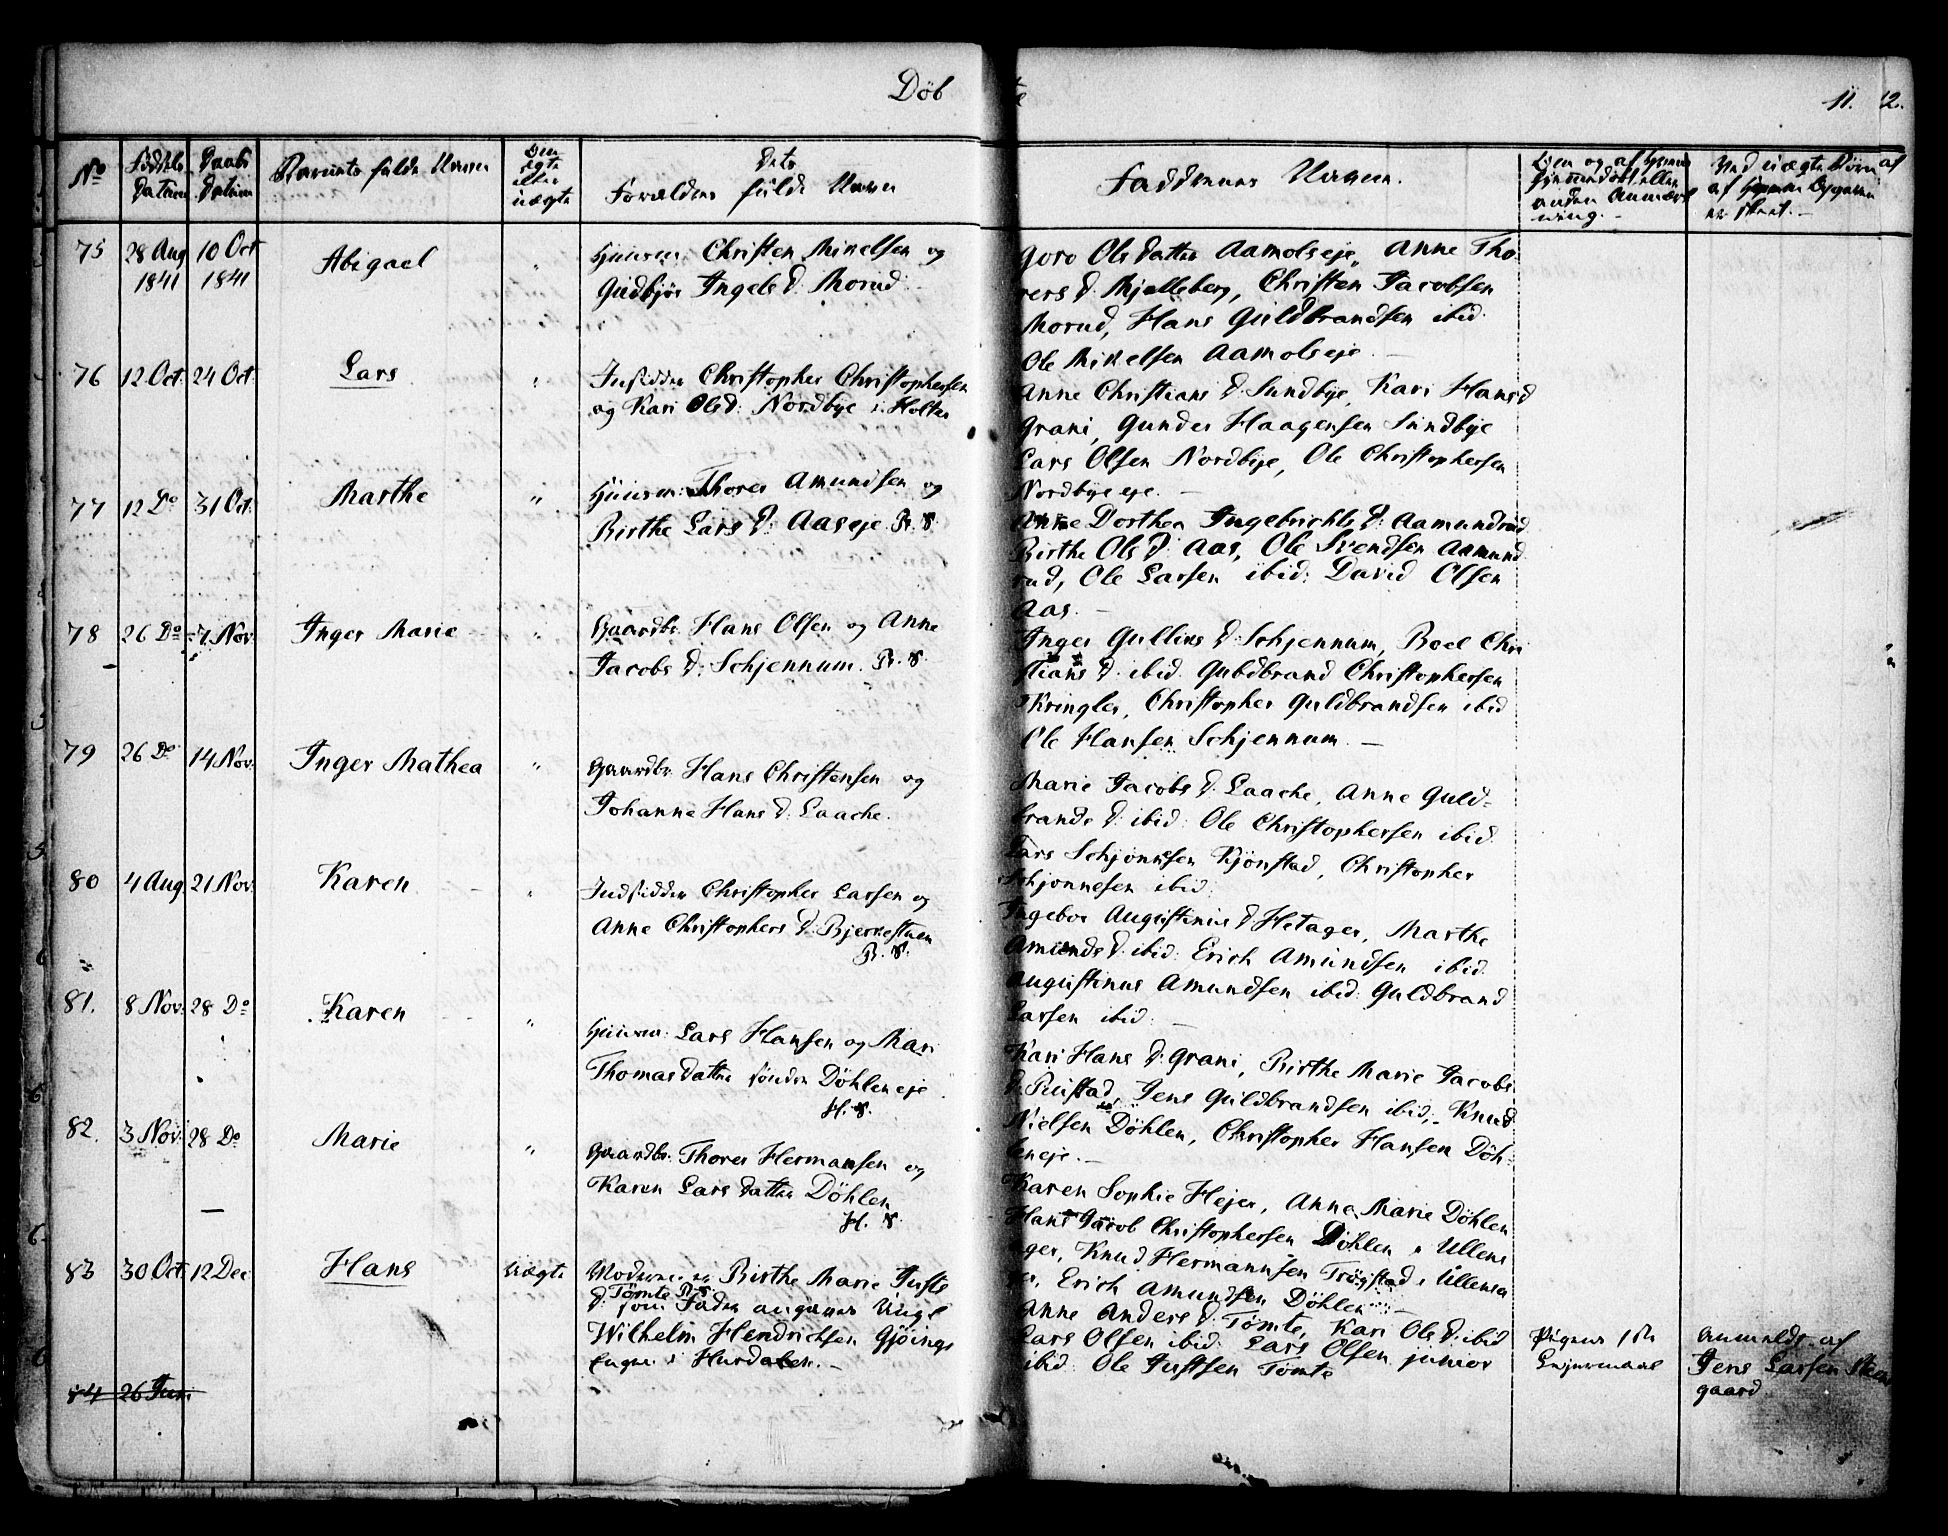 Døb
te
11. 12.
No
Fødsels Datum
Daabs Datum
Barnets fulde Navn
Om ægte eller uægte
Dets Forældres fulde Navn
Faddernes Navne.
Ved uægte Børn af
75 28 Aug 1841 10 Oct 1841 Abigael "
Huusm: Christen Mikelsen og
Gudbjør Ingels D: Morud.
Goro Ols datter Aamolseje, Anne Tho
rers D. Mjølleberg, Christen Jacobsen
Morud, Hans Guldbrandsen ibid.
Ole Mikelsen Aamolseje. —
76 12 Oct. 24 Oct. Lars "
Indsidder Christopher Christophersen
og Kari Ols D: Nordbye i Holter
Anne Christians D. Sundbye, Kari Hans D
Grani, Gunder Haagensen Sundbye
Lars Olsen Nordbye, Ole Christophersen
Nordbye eje. —
77 12 Do 31 Oct. Marthe "
Huusm: Thorer Amundsen og
Birthe Lars D: Aas eje. B. S.
Anne Dorthea Ingebrichts D: Aamundrud
Birthe Ols D: Aas, Ole Svendsen Aamund
rud, Ole Larsen ibid: David Olsen
Aas. —
78 26 Do 7 Nov. Inger Marie "
Gaardbr. Hans Olsen og Anne
Jacobs D: Schjennum. B. S.
Inger Gullies D: Schjennum, Boel Chri
stians D. ibid. Gulbdbrand Christophersen
Kringler, Christopher Guldbrandsen ibid
Ole Hansen Schjennum. —
79 26 Do 14 Nov. Inger Mathea "
Gaardbr. Hans Christensen og
Johanne Hans D: Laache.
Marie Jacobs D. Laache, Anne Guld-
brands D: ibid: Ole Christophersen ibid.
Lars Schjønnesen Kjønstad, Christopher
Schjønnesen ibid.
80 4 Aug 21 Nov. Karen "
Indsidder Christopher Larsen og
Anne Christophers D. Bjerkestuen
B. S.
Ingebor Augustinus D. Hetager, Marthe
Amunds D: ibid: Erich Amundsen ibid.
Augustinus Amundsen ibid: Guldbrand
Larsen ibid. —
81. 8 Nov. 28 Do Karen "
Huusm. Lars Hansen og Mari
Thomas datter søndre Døhlen eje
H. S.
Kari Hans D: Grani, Birthe Marie Jacobs
D. Ruistad, Jens Guldbrandsen ibid, Knud
Nielsen Døhlen, Christopher Hansen Døh-
leneje. —
82. 3 Nov. 28 Do Marie "
Gaardbr. Thorer Hermansen og
Karen Lars datter Døhlen
H. S.
Karen Sophie Hejer, Anne Marie Døhlen
Hans Jacob Christophersen Døhlen i Ullens
ager, Knud Hermannsen Trøgstad i Ullensa
ger, Erich Amundsen Døhlen —
83 30 Oct. 12 Dec Hans Uægte
Moderen er Birthe Marie Juste
D. Tømte B.S. som Fader angives Ungk.
Wilhelm Hendrichsen Gjøings
Engen i Hurdalen. —
Anne Anders D. Tømte, Kari Ols D. ibid
Lars Olsen ibid. Lars Olsen junior
ibid. Ole Justsen Tømte
Pigens 1ste
Lejermaal
Anmeldt af
Jens Larsen Steen
gaard
84 26 Juni